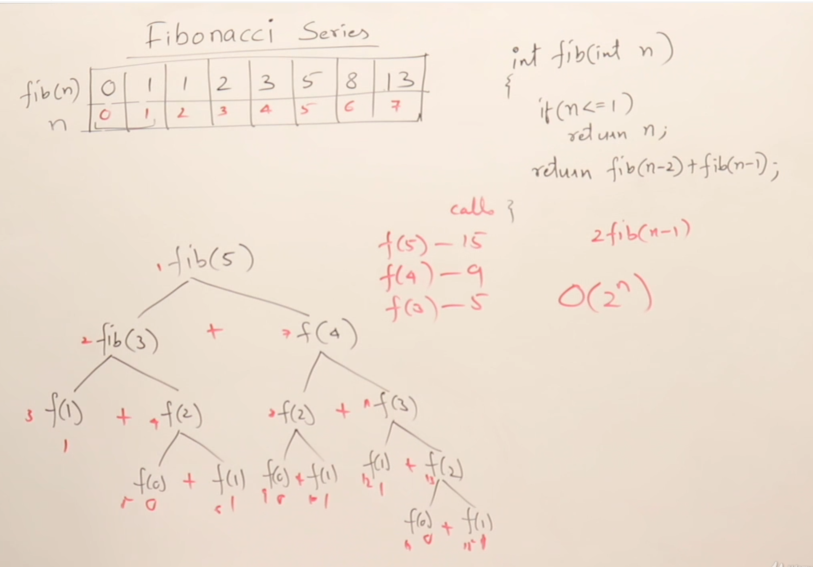 Fibonacci Series
fib(n) 0 1 1 2 3 5 8 13
n 0 1 2 3 4 5 6 7
int fib(int n)
{
if(n<=1)
return n;
return fib(n-2)+fib(n-1);
}
calls
f(5)-15
f(4)-9
f(3)-5
2fib(n-1)
O(2ⁿ)
1 fib(5)
2 fib(3) + 7 f(4)
3 f(1) + 4 f(2) f(2) + f(3)
1
f(0) + f(1) f(0) + f(1) f(1) + f(2)
5 0 6 1 0 1 12 1 13
f(0) + f(1)
0 1